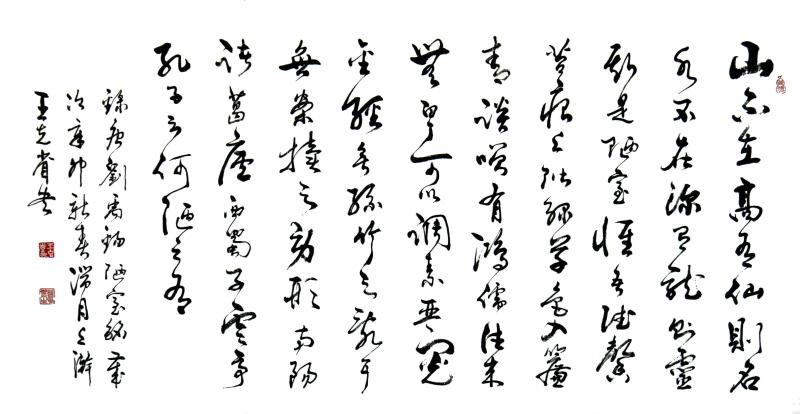 山不在高有仙則名
水不在深有龍則靈
斯是陋室惟吾德馨
苔痕上階綠草色入簾
青談笑有鴻儒往來
無白丁可以調素琴閱
金經無絲竹之亂耳
無案牘之勞形南陽
諸葛廬西蜀子雲亭
孔子云何陋之有
錄唐劉禹錫陋室銘歲
次辛卯新春端月上澣
王克書